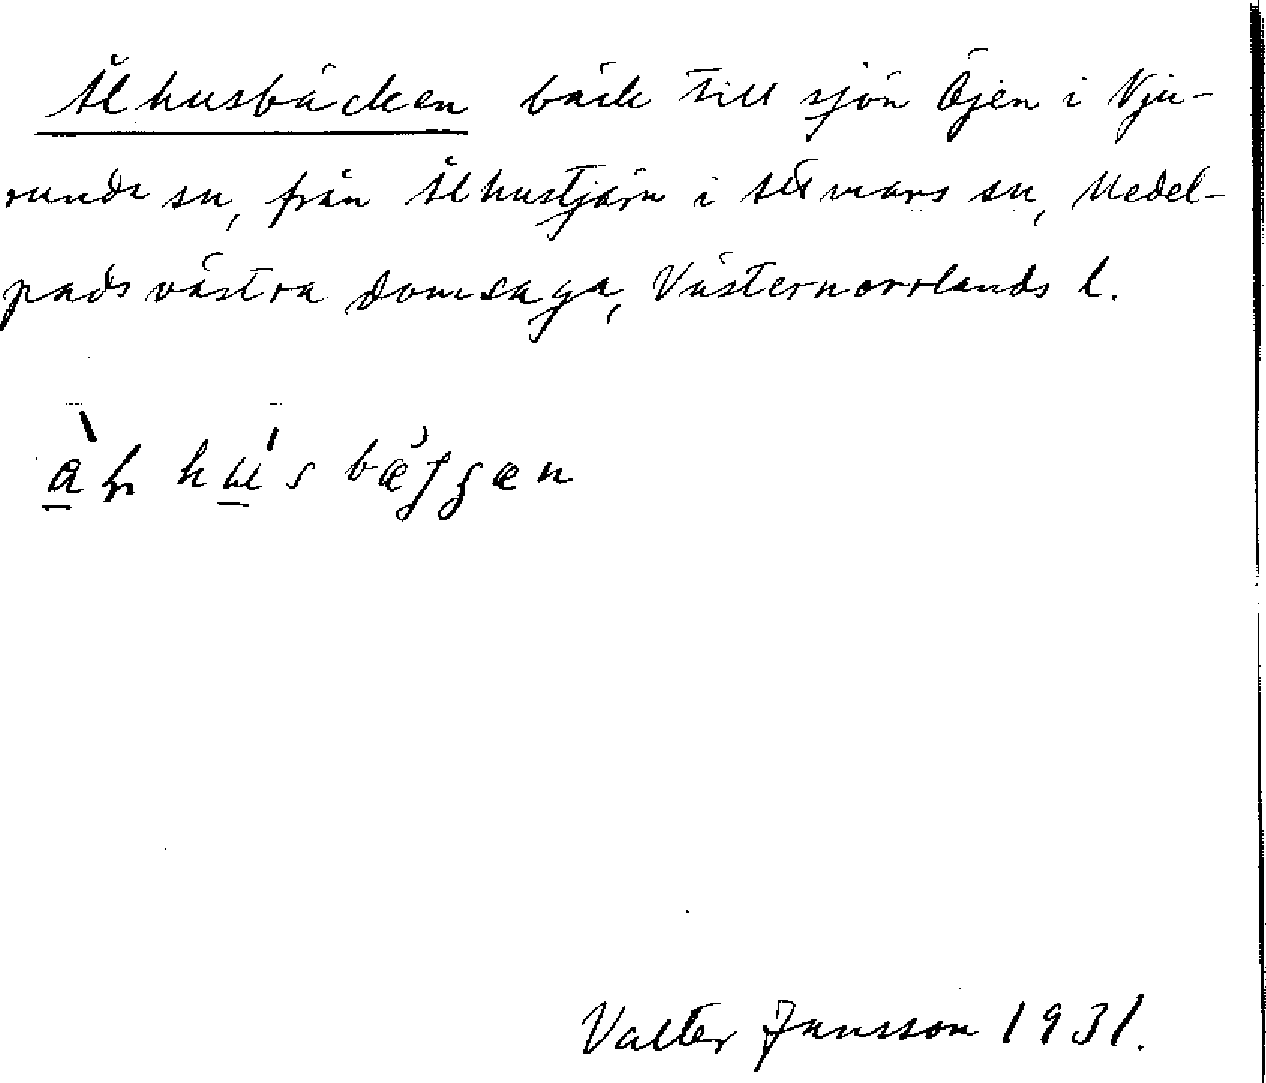 Ålhusbäcken bäck till sjön Öjen i Nju-
runda sn, från Ålhustjärn i Attmars sn, Medel-
pads västra domsaga, Västernorrlands l.
Valter Jansson 1931.